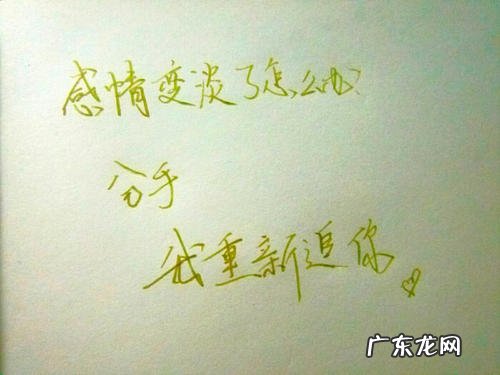 感情变淡了怎么办?
分手
我重新追你
广东龙网